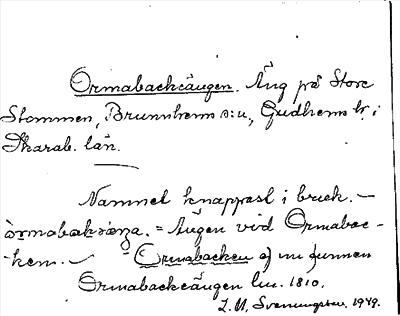 Ormabackeängen. Äng på Store
Stommen, Brunnhems s:n, Gudhems hr i
Skarab. län.
Namnet knappast i bruk. –
= Ängen vid Ormabac-
ken. – Ormabacken ej nu funnen
Ormabackeängen lm. 1810.
Svenungsson. 1949.